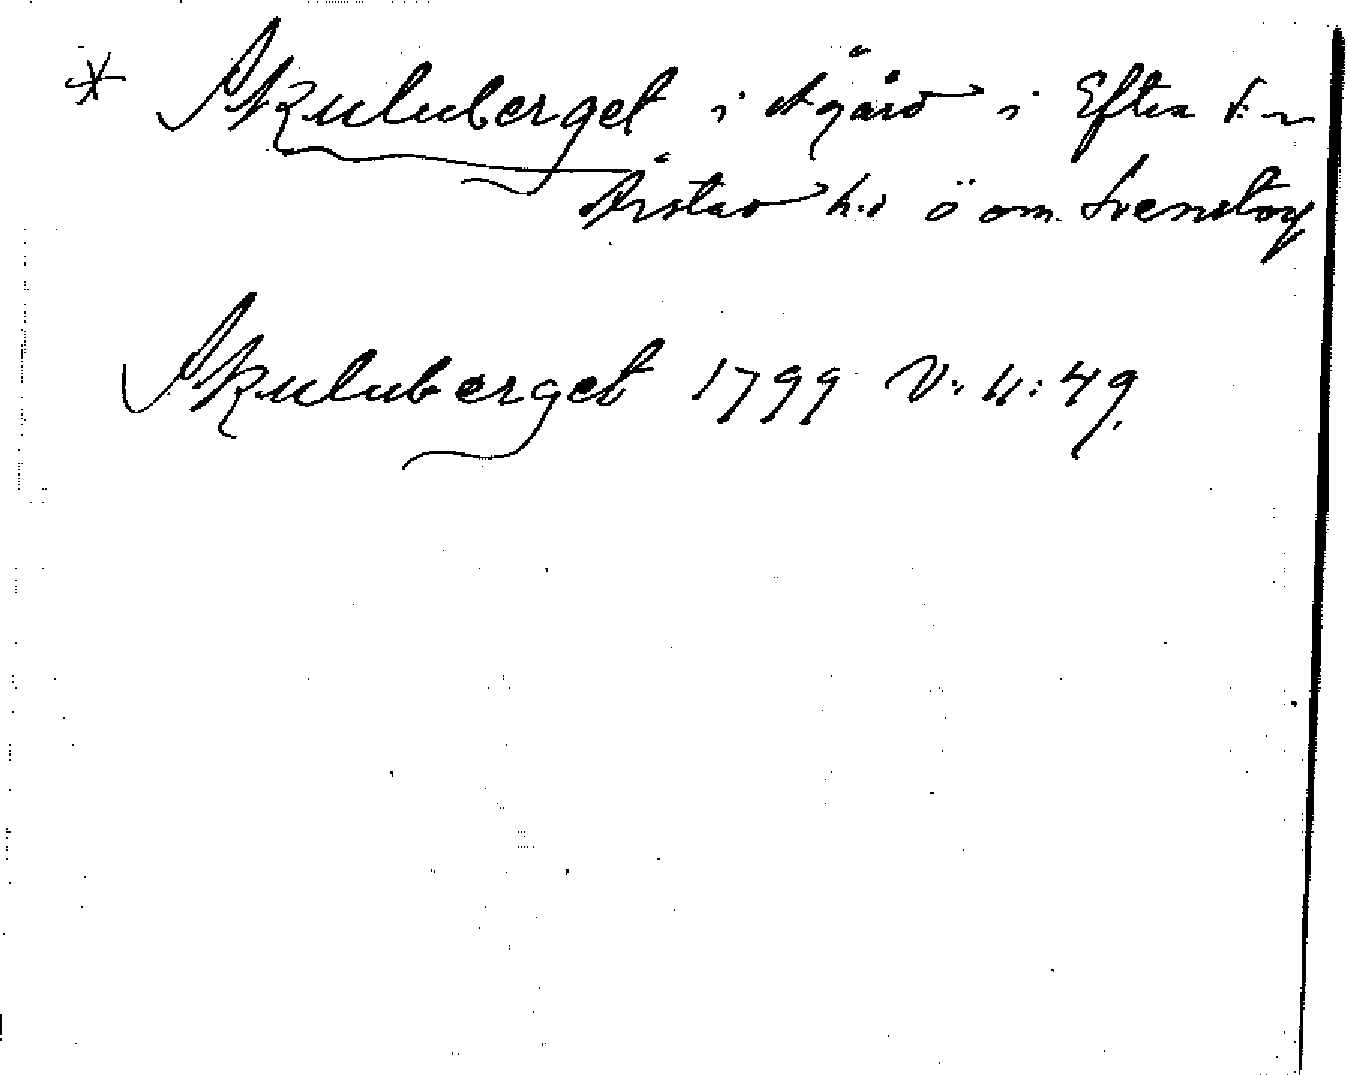 * Skuluberget i Ågård i Eftra s:n
Årstad h:d ö om Svenstorp
Skuluberget 1799 V: 4: 49.